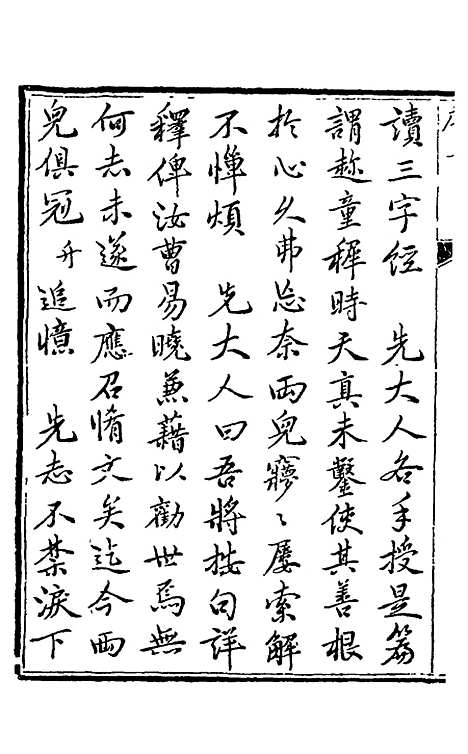 讀三字經　先大人各手授是篇
謂趂童穉時天真未鑿使其善根
於心久弗忘奈兩兒寥〻屢索解
不憚煩　先大人曰吾將按句詳
釋俾汝曹易曉兼藉以勸世焉無
何志未遂而應召脩文矣迄今兩
兒俱冠升追憶　先志不禁淚下